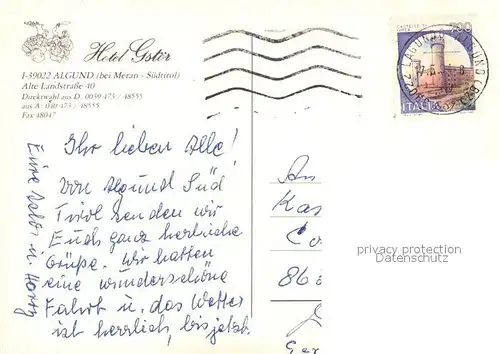 Hotel Gstör
I-39022 ALGUND (bei Meran - Südtirol)
Alte Landstraße 40
Direktwahl aus D 0039 473 / 48555
aus A 040 473 / 48555
Fax 48047
700
ITALIA
Ihr lieben Alle!
Von Algund Süd
Tirol senden wir
Euch ganz herzliche
Grüße. Wir hatten
eine wunderschöne
Fahrt u. das Wetter
ist herrlich, bis jetzt.
Eure u. Harry
An
Kas
Co
86
Ger
privacy protection
Datenschutz